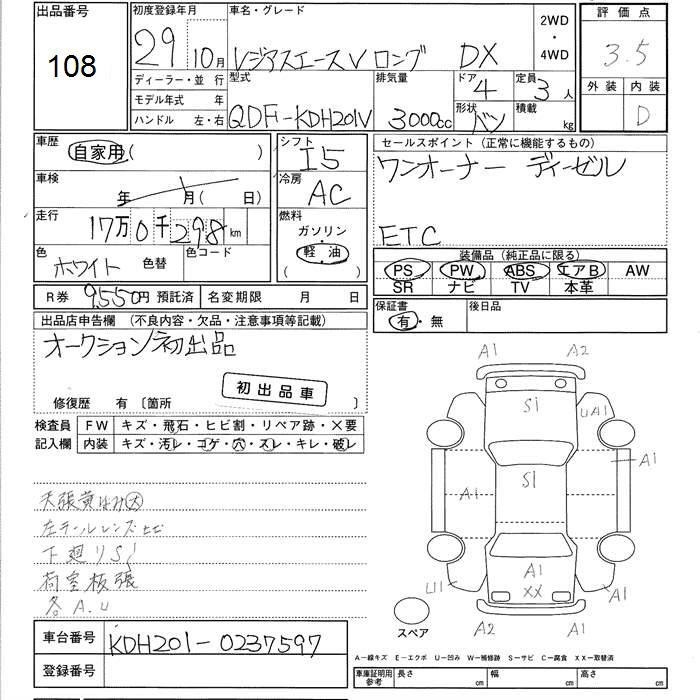 出品番号 初度登録年月 車名・グレード 2WD・4WD 評価点
108 29 10月 レジアスエースV ロング DX 3.5
ディーラー・並行 型式 排気量 ドア 定員 外装 内装
モデル年式 年 QDF-KDH201V 3000cc 4 3人 D
ハンドル 左・右 形状 バン 積載 kg
車歴 自家用( ) シフト I5 セールスポイント(正常に機能するもの)
車検 年 月( 日) 冷房 AC ワンオーナー ディーゼル
走行 17万0千298km 燃料 ガソリン・軽油 ( ) ETC
色 ホワイト 色替 色コード 装備品(純正品に限る)
PS PW ABS エアB AW
SR ナビ TV 本革
R券 9,550円 預託済 名変期限 月 日 保証書 有・無 後日品
出品店申告欄 (不良内容・欠品・注意事項等記載)
オークション初出品
初出品車
修復歴 有 〔箇所
検査員 FW キズ・飛石・ヒビ割・リペア跡・×要
記入欄 内装 キズ・汚レ・コゲ・穴・スレ・キレ・破レ
A1 A2
S1 UA1
A1
S1
A1
A1
XX
U1 A1
A2 A1
スペア
天張黄ばみ大
左テールレンズヒビ
下廻りS
荷室板張
各A.U
車台番号 KDH201-0237597
登録番号
A-線キズ E-エクボ U-凹み W-補修跡 S-サビ C-腐食 XX-取替済
車庫証明用参考 長さ cm 幅 cm 高さ cm